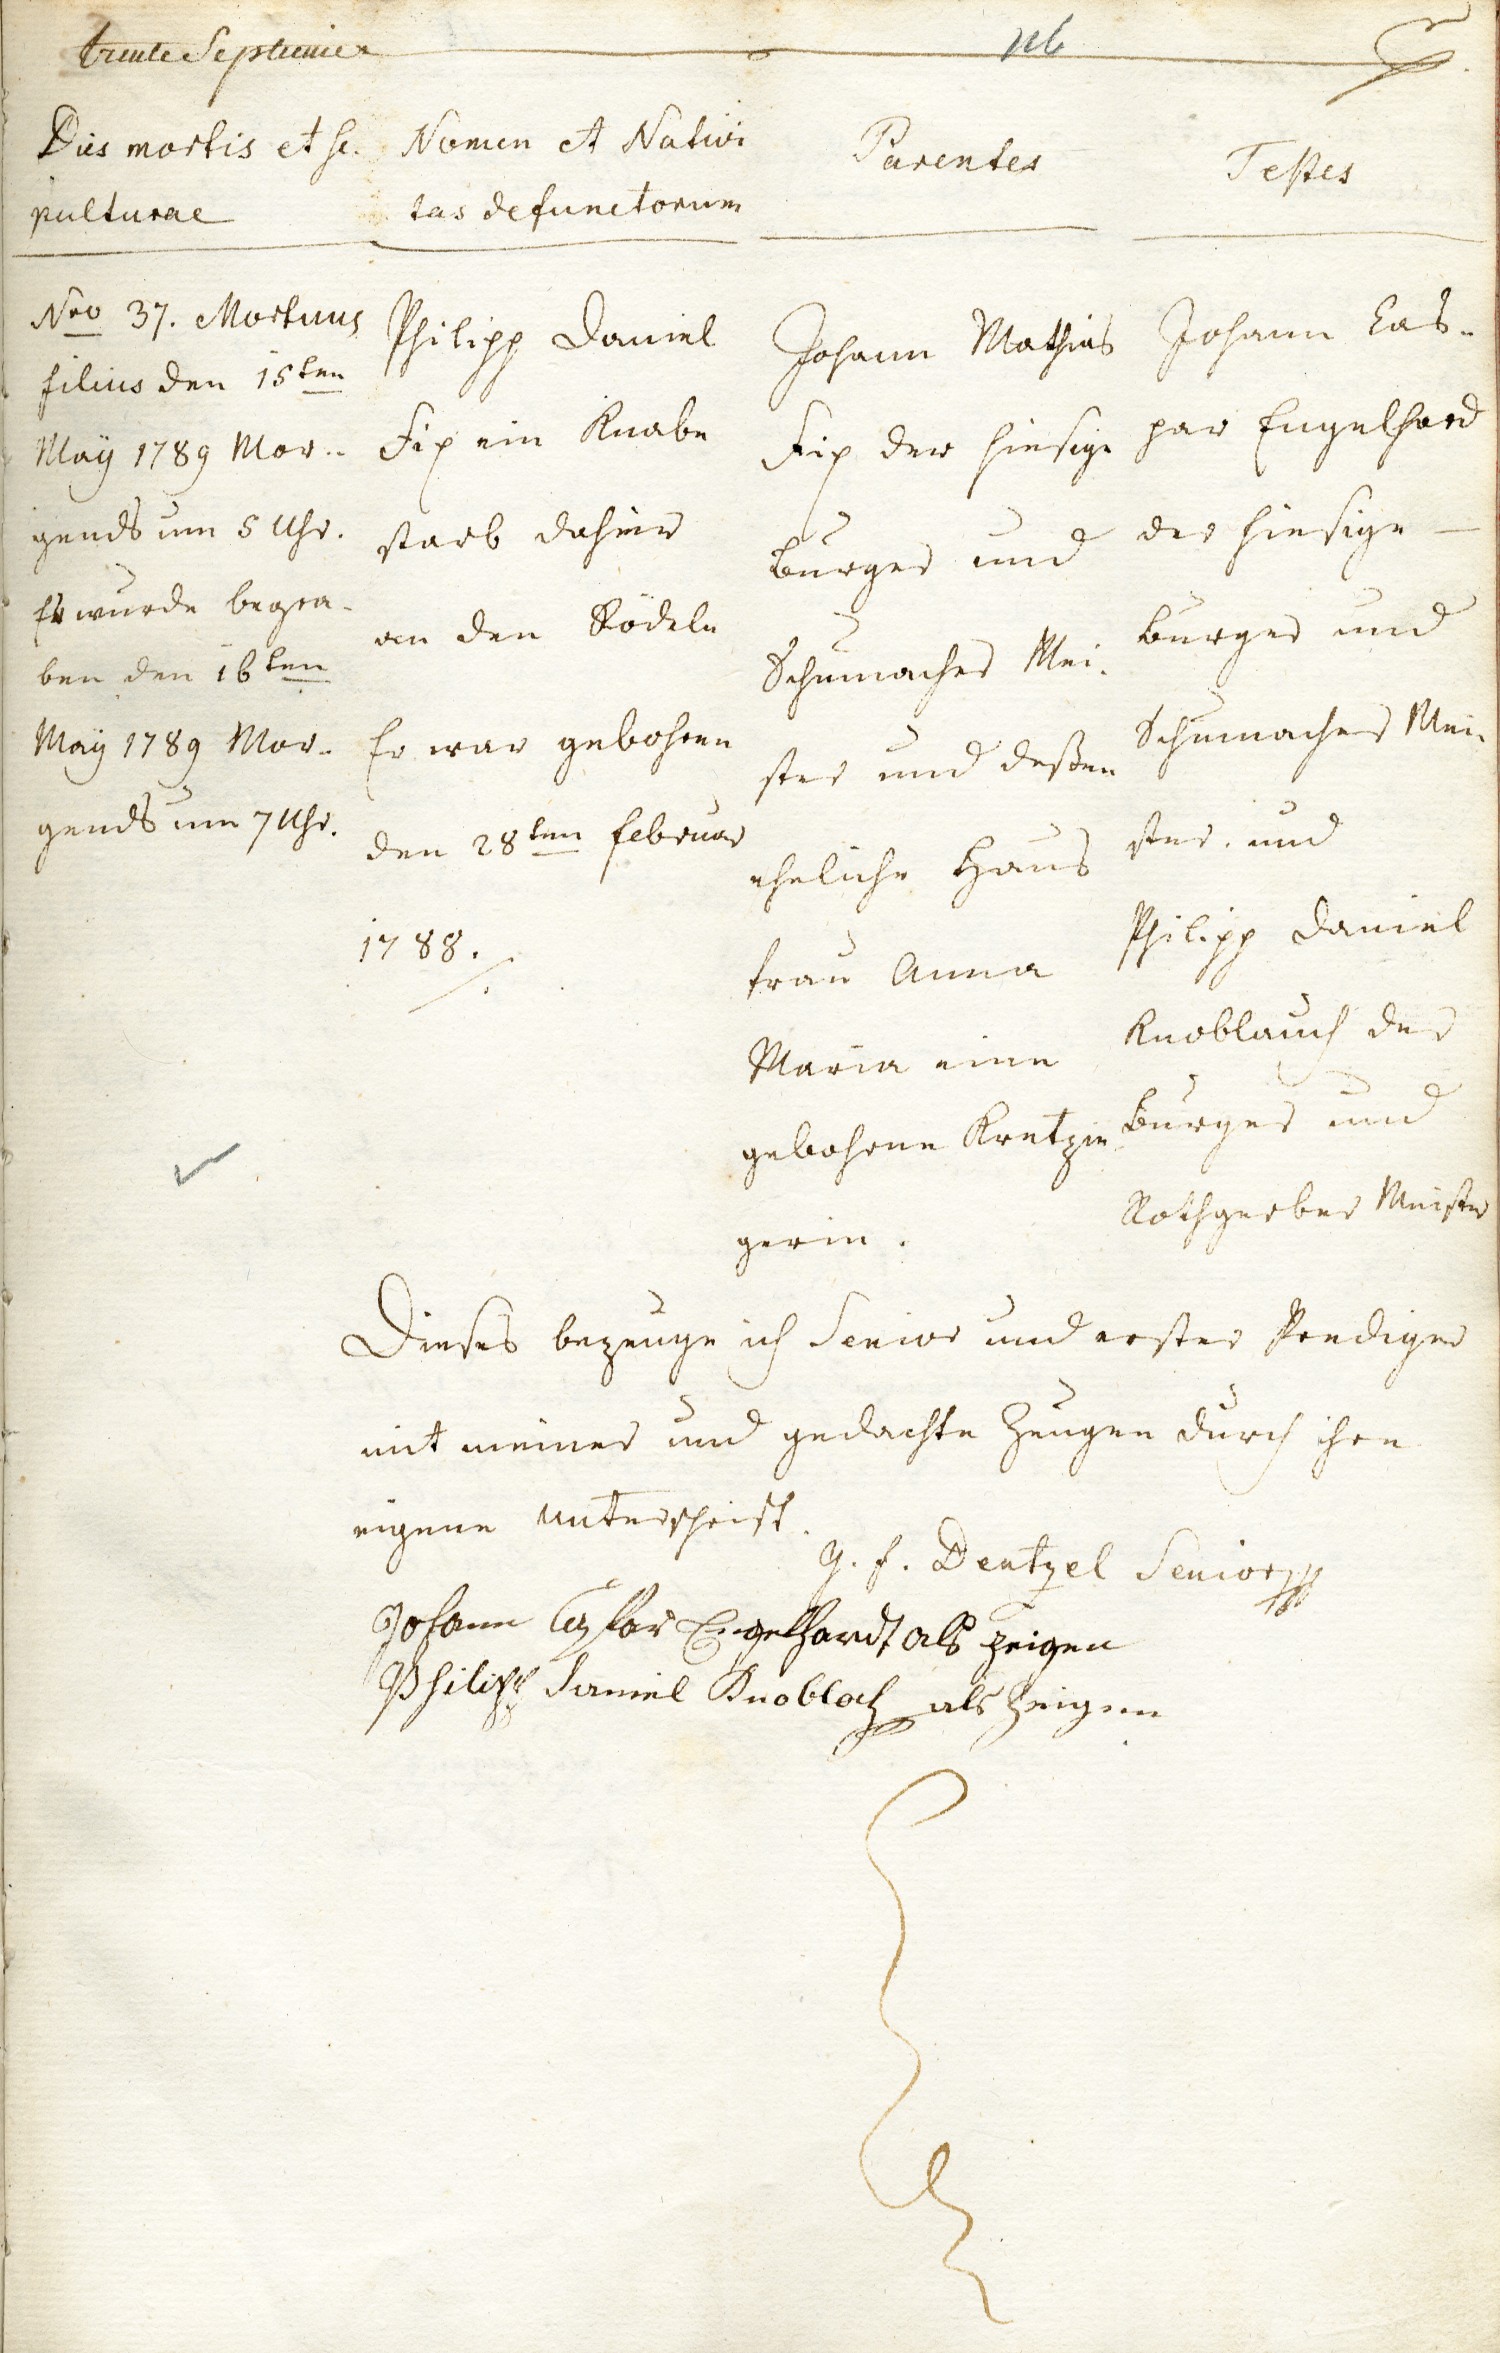 trente Septieme
116
Dies mortis et se.
pulturae
Nomen et Nativi
tas defunctorum
Parentes
Testes
Nro 37. Mortuus
filius den 15ten
Maÿ 1789 Mor..
gends um 5 Uhr.
Er wurde begra-
ben den 16ten
Maÿ 1789 Mor-
gends um 7 Uhr.
Philipp Daniel
Fix ein Knabe
starb dahier
an den Rödeln
Er war gebohren
den 28ten Februar
1788.
Johann Mathias
Fix der hiesige
Burger und
Schumacher Mei-
ster und deßen
eheliche Haus
frau Anna
Maria eine
gebohrne Kretzin
gerin.
Johann Cas-
par Engelhard
der hiesige
Burger und
Schumacher Mei-
ster. und
Philipp Daniel
Knoblauch der
Burger und
Rothgerber Meister
Dieses bezeuge ich Senior und erster Prediger
mit meiner und gedachte Zeugen durch ihre
eigene Unterschrift.
G. F. Dentzel Senior
Johann Casbar Engelhardt als zeigen
Philipp Daniel Knobloch als Zeigen